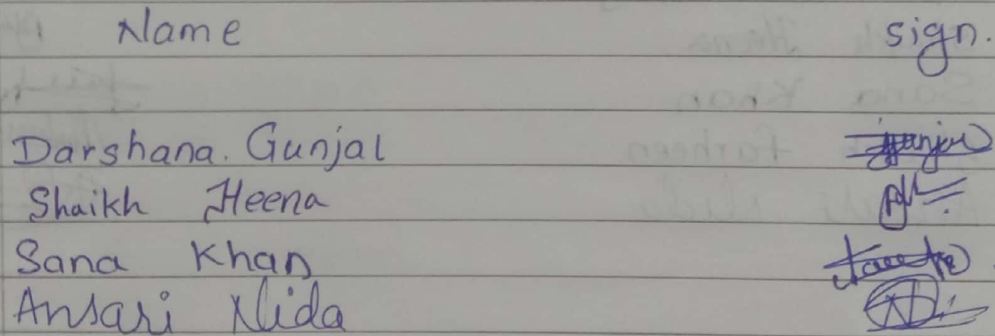 Name sign.
Darshana. Gunjal
Shaikh Heena
Sana Khan
Ansari Nida